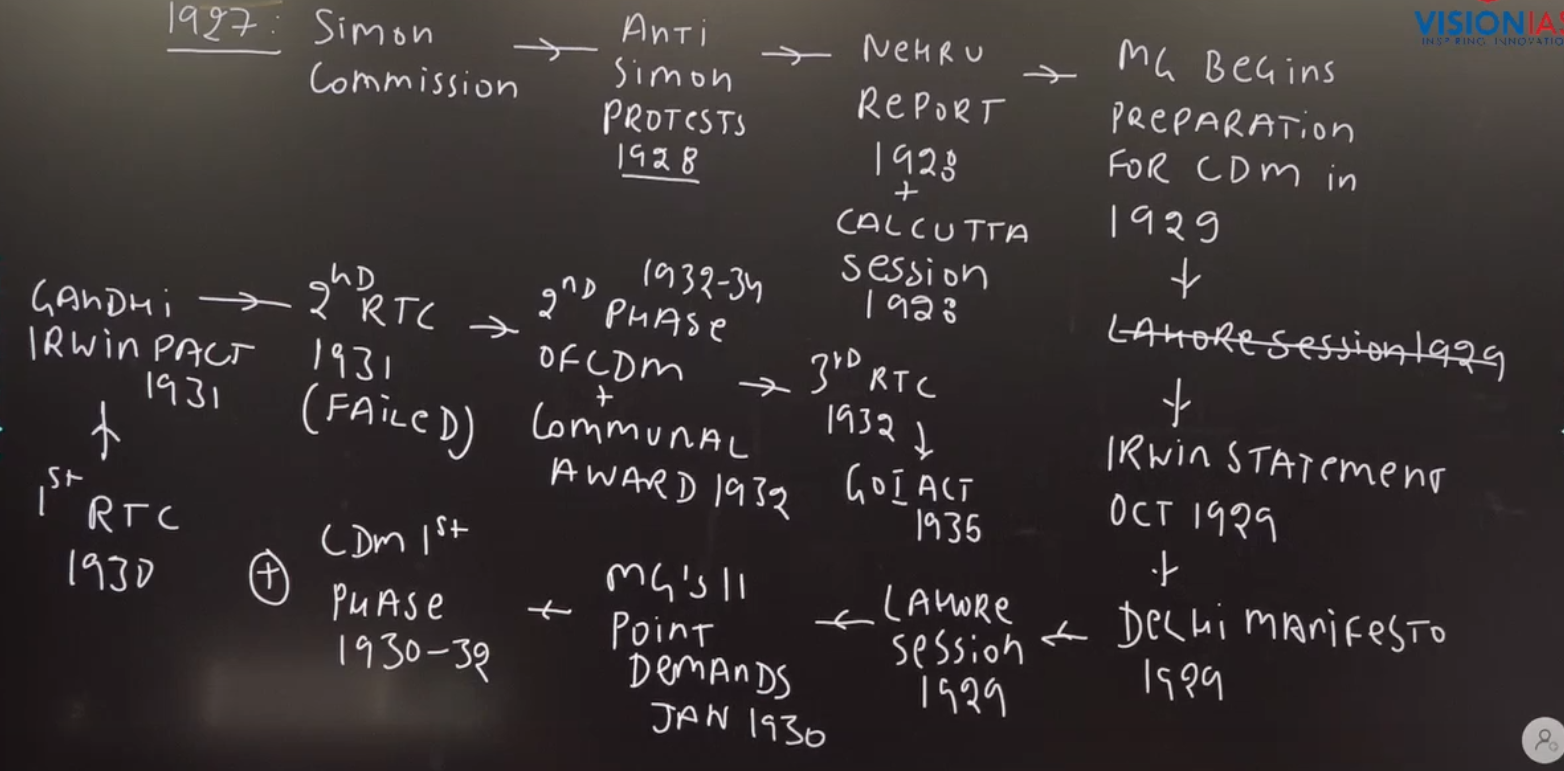 1927: Simon
Commission
→ ANTi
Simon
PROTESTS
1928
→ NEHRU
REPORT
1928
+
CALCUTTA
Session
1928
→ MG BEGinS
PREPARATion
FOR CDM in
1929
↓
LAHORE Session 1929
↓
IRWin STATEMENT
OCT 1929
↓
DELHi MANiFESTO
1929
← LAHORE
Session
1929
← MG'S 11
POINT
DEMANDS
JAN 1930
← CDM 1st
PHASE
1930-32
+
1st RTC
1930
↑
GANDHi
IRWin PACT
1931
→ 2nD RTC
1931
(FAiLED)
→ 2nD PHASE
1932-34
OF CDM
+
COMMUNAL
AWARD 1932
→ 3rD RTC
1932
↓
GOI ACT
1935
VISIONIAS
INSPIRING INNOVATIO